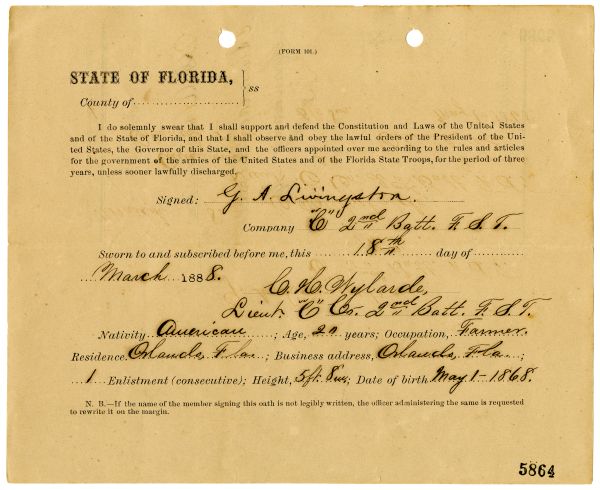 (FORM 101.)
STATE OF FLORIDA,
ss
County of
I do solemnly swear that I shall support and defend the Constitution and Laws of the United States
and of the State of Florida, and that I shall observe and obey the lawful orders of the President of the Uni-
ted States, the Governor of this State, and the officers appointed over me according to the rules and articles
for the government of the armies of the United States and of the Florida State Troops, for the period of three
years, unless sooner lawfully discharged.
Signed: G. A. Livingston.
Company "C" 2nd Batt. F. S. T.
Sworn to and subscribed before me, this 18th day of
March 1888.
C. H. Wylarde,
Lieut. "C" Co. 2nd Batt. F. S. T.
Nativity American; Age, 20 years; Occupation, Farmer.
Residence. Orlando, Fla.; Business address, Orlando, Fla.;
1 Enlistment (consecutive); Height, 5 ft. 8 ins; Date of birth May 1-1868.
N. B.—If the name of the member signing this oath is not legibly written, the officer administering the same is requested
to rewrite it on the margin.
5864